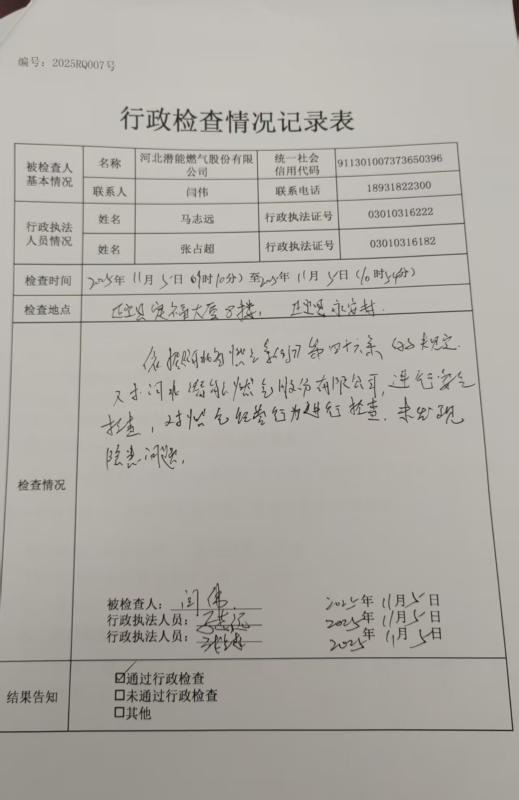 编号：2025RQ007号
行政检查情况记录表
被检查人基本情况 名称 河北潜能燃气股份有限公司 统一社会信用代码 911301007373650396
联系人 闫伟 联系电话 18931822300
行政执法人员情况 姓名 马志远 行政执法证号 03010316222
姓名 张占超 行政执法证号 03010316182
检查时间 2025年11月5日(09时10分)至2025年11月5日(10时54分)
检查地点 正定县 大厦 楼， 正定县永安村
检查情况
依据《河北省燃气条例》第四十六条的规定
对河北潜能燃气股份有限公司，进行安全
检查，对燃气经营行为进行检查，未发现
隐患问题。
被检查人：闫伟 2025年11月5日
行政执法人员：马志远 2025年11月5日
行政执法人员：张占超 2025年11月5日
结果告知
☑通过行政检查
□未通过行政检查
□其他